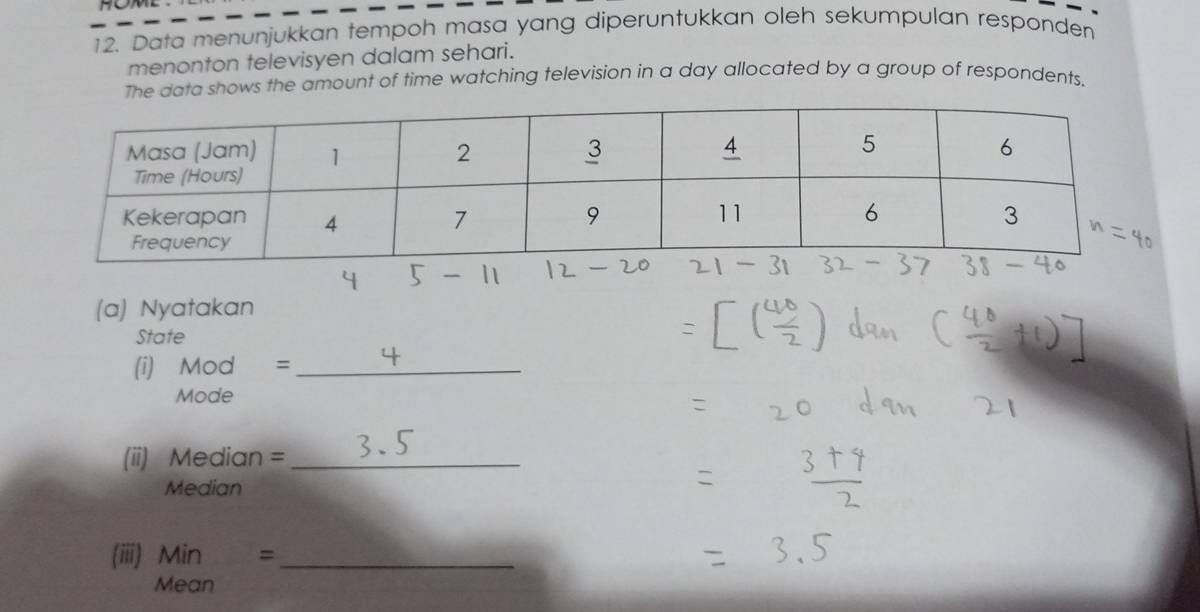 12. Data menunjukkan tempoh masa yang diperuntukkan oleh sekumpulan responden
menonton televisyen dalam sehari.
The data shows the amount of time watching television in a day allocated by a group of respondents.
Masa (Jam) 1 2 3 4 5 6
Time (Hours)
Kekerapan 4 7 9 11 6 3
Frequency
n = 40
4 5 - 11 12 - 20 21 - 31 32 - 37 38 - 40
(a) Nyatakan
State
= [(40/2) dan (40/2 + 1)]
(i) Mod = 4
Mode
= 20 dan 21
(ii) Median = 3.5
Median
= 3 + 4 / 2
(iii) Min =
Mean
= 3.5